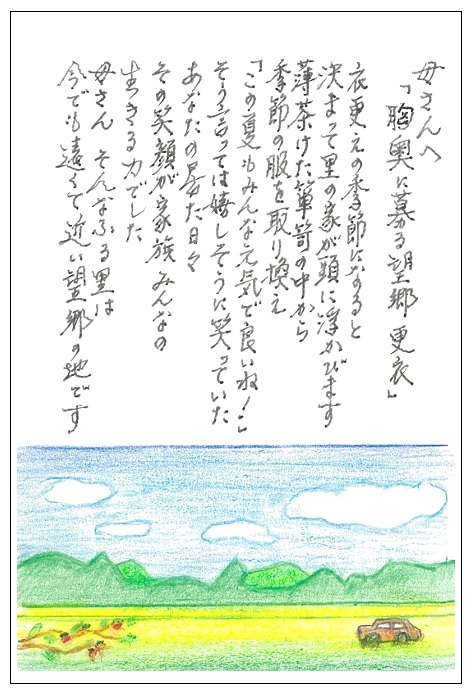 母さんへ
「胸奥に募る望郷 更衣」
衣更えの季節になると
決まって里の家が頭に浮かびます
薄茶けた箪笥の中から
季節の服を取り換え
「この夏もみんな元気で良いね！」
そう言っては嬉しそうに笑っていた
あなたの居た日々
その笑顔が家族みんなの
生きる力でした
母さん そんなふる里は
今でも遠くて近い望郷の地です